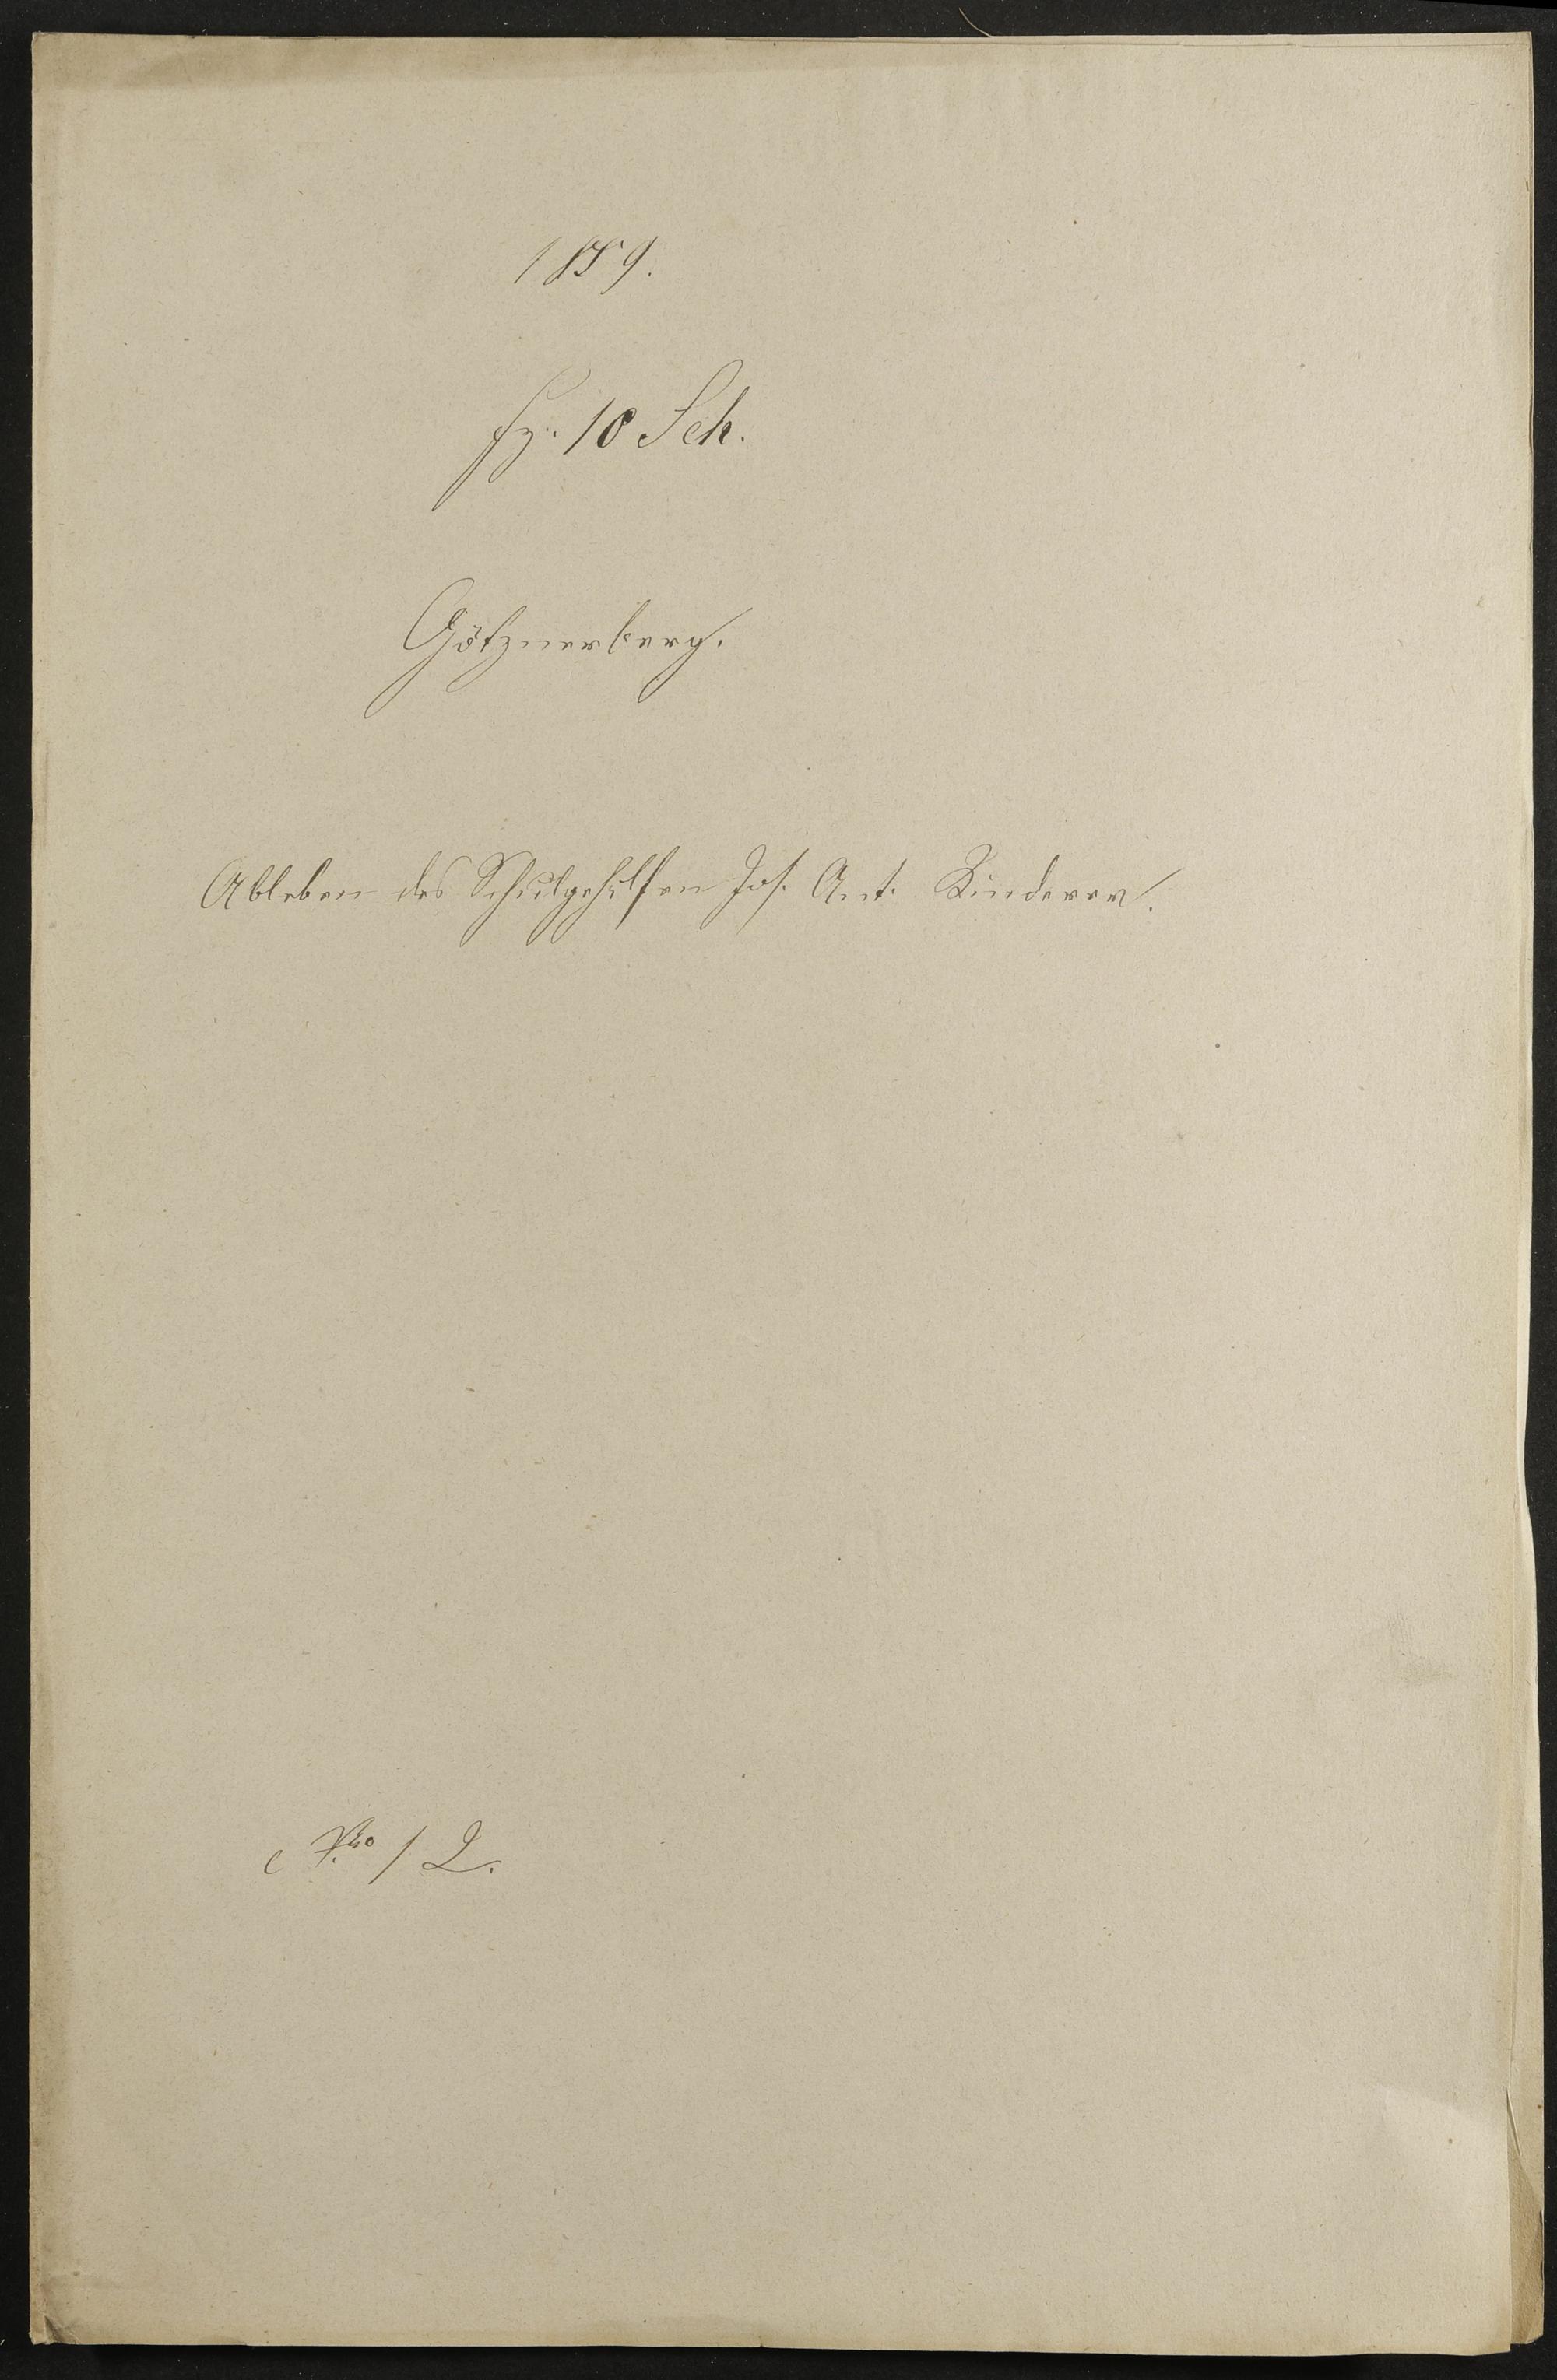 1859.
fz. 10 Sch.
Götznerberg.
Ableben des Schulgehilfen Jos. Ant. Kinderer.
No 12.